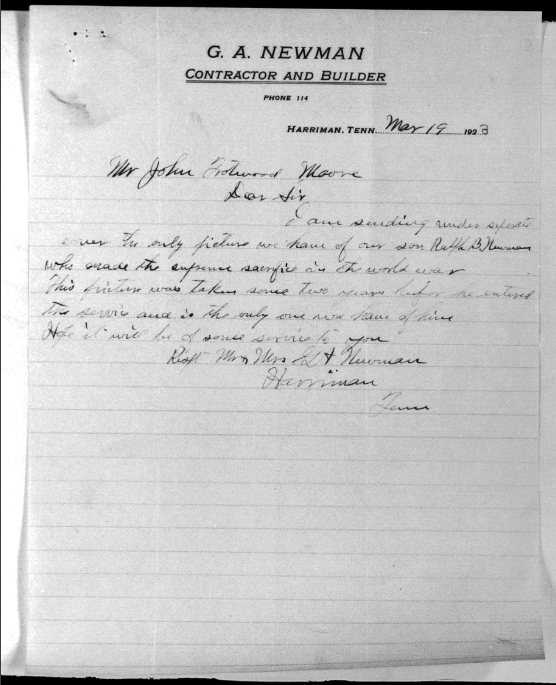 G. A. NEWMAN
CONTRACTOR AND BUILDER
PHONE 114
HARRIMAN, TENN. Mar 19 1923
Mr John Trotwood Moore
Dear Sir
I am sending under seperate
cover the only picture we have of our son Ralph B Newman
who made the supreme sacrifice in the world war
This picture was taken some two years befor he entered
the service and is the only one we have of him
Hope it will be of some service to you
Respt Mr & Mrs G A Newman
Harriman
Tenn